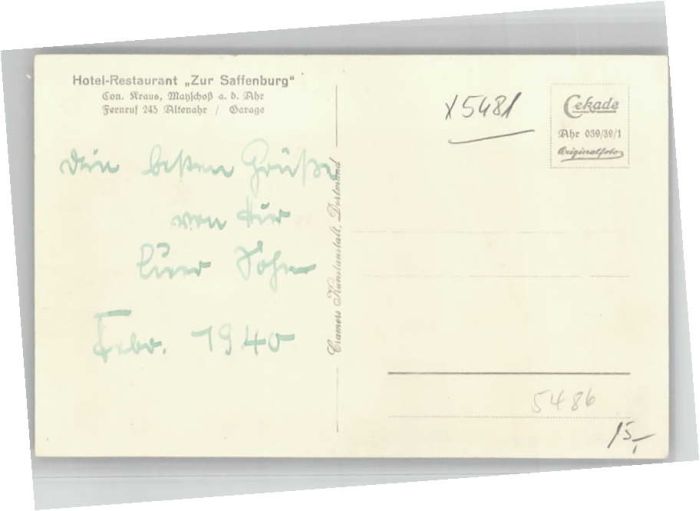 Hotel-Restaurant „Zur Saffenburg"
Con. Kraus, Mayschoß a. d. Ahr
Fernruf 245 Altenahr / Garage
besten Grüße
von
Euer Sohn
Febr. 1940
Cramers Kunstanstalt, Dortmund
X5481
Cekade
Ahr 039/39/1
Originalfoto
5486
15,-